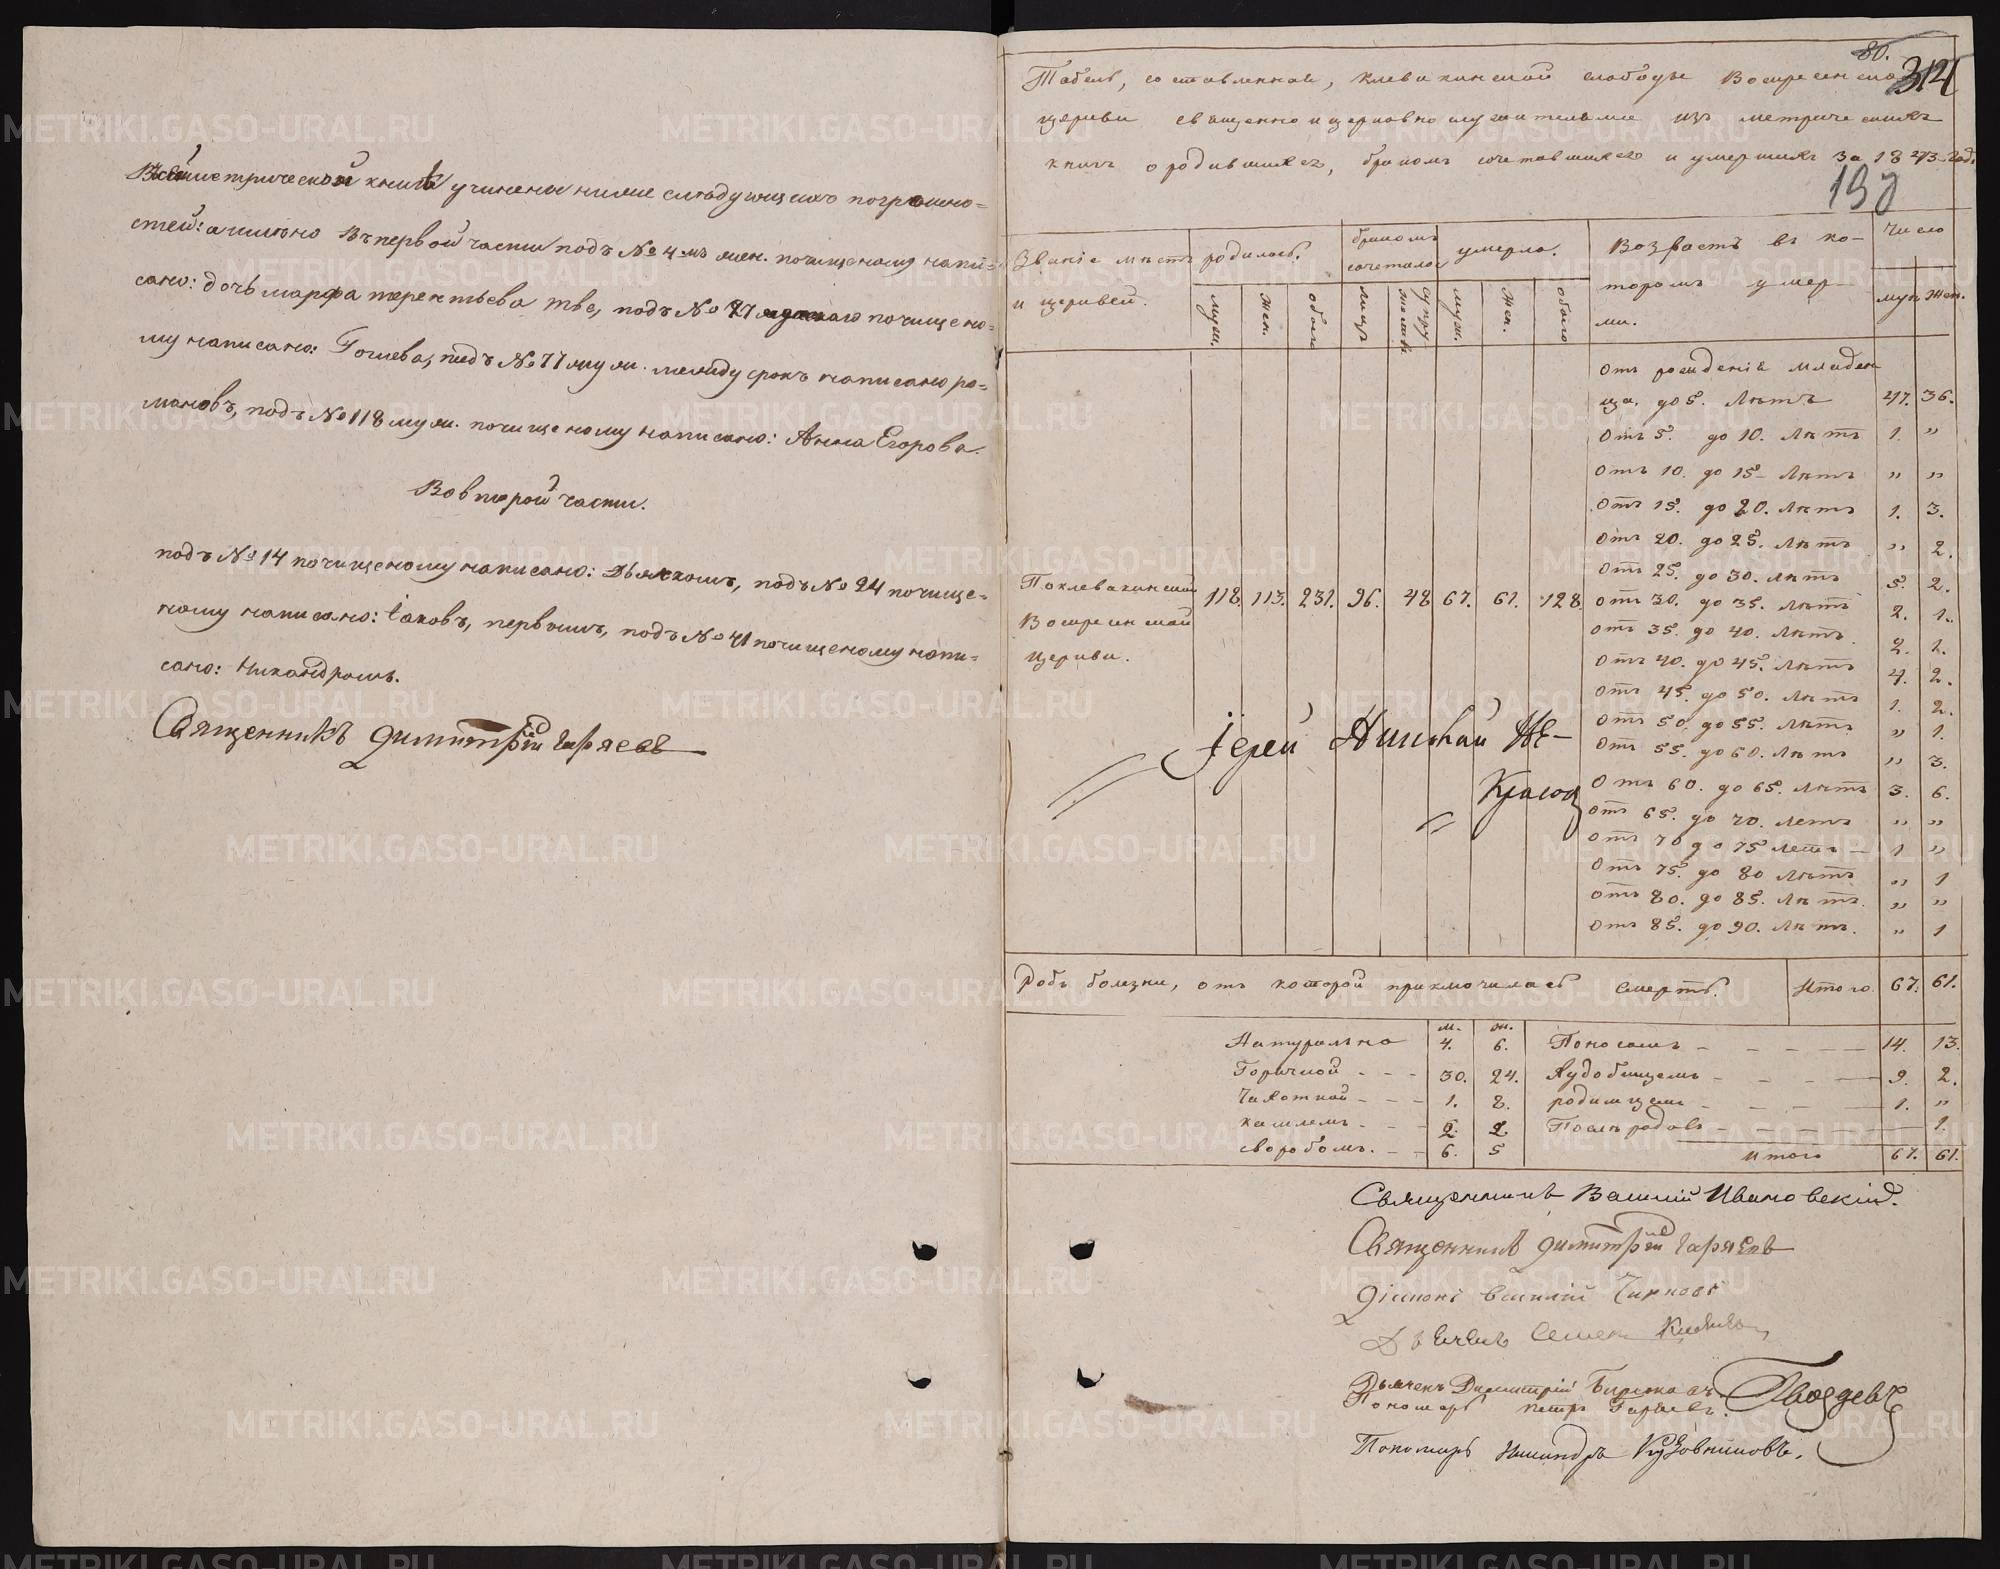 Въ сей метрической книгѣ учинены ниже слѣдующихъ погрѣшно=
стей: а именно Въ первой части подъ № 4 мъ жен. почищеному напи=
сано: дочь марфа терентьева тве, подъ № 71 почищено=
му написано: Гоглева, подъ № 77 муж. между срокъ написано ро=
мановъ, подъ № 118 муж. почищеному написано: Анна Егорова.
Во второй части.
подъ № 14 почищеному написано: Дьячкомъ, подъ № 24 почище=
ному написано: Іаковъ, первымъ, подъ № 41 почищеному напи=
сано: Никандромъ.
Священникъ Димитрій Гаряевъ
80.
314
Табель, составленная, Клевакинской слободы Воскресенской
церкви священно и церковно служителями изъ метрическихъ
книгъ о родившихся, бракомъ сочетавшихся и умершихъ за 1843 годъ
190
Званіе мѣстъ и церквей. родилось. бракомъ сочеталось умерло. Возрастъ въ которомъ умерли. Число
муж. жен. обоего лицъ супружествъ муж. жен. обоего муж. жен.
Отъ рожденія младен
ца до 5. лѣтъ 47. 36.
Отъ 5. до 10. лѣтъ 1. "
Отъ 10. до 15 лѣтъ " "
Отъ 15. до 20. лѣтъ 1. 3.
Отъ 20. до 25. лѣтъ " 2.
Отъ 25. до 30. лѣтъ 5. 2.
Поклевакинской Воскресенской церкви. 118. 113. 231. 96. 48 67. 61. 128.
Отъ 30. до 35. лѣтъ 2. 1.
Отъ 35. до 40. лѣтъ. 2. 1.
Отъ 40. до 45. лѣтъ 4. 2.
Отъ 45. до 50. лѣтъ 1. 2.
Отъ 50. до 55. лѣтъ " 1.
Отъ 55. до 60. лѣтъ " 3.
Отъ 60. до 65. лѣтъ 3. 6.
Отъ 65. до 70. летъ " "
Отъ 70 до 75 летъ 1 "
Отъ 75. до 80 лѣтъ " 1
Отъ 80. до 85. лѣтъ. " "
Отъ 85. до 90. лѣтъ. " 1
Іерей Николай Не-
красов
Родъ болѣзни, отъ которой приключилась смерть. Итого 67. 61.
м. ж.
Натурально 4. 6. Поносомъ 14. 13.
Горячкой 30. 24. Худобищемъ 9. 2.
Чахоткой 1. 8. родимцемъ 1. "
кашлемъ 2. 2. Послѣ родовъ 1.
воробомъ. 6. 5 Итого 67. 61.
Священникъ Василій Ивановскій.
Священникъ Димитрій Гаряевъ
Діаконъ Василій Чирковъ
Дьячекъ Семен
Дьячекъ Димитрій Бирюковъ.
Пономарь Петръ Гаряевъ. Гвоздевъ
Пономарь Никандръ Кузовниковъ.
METRIKI.GASO-URAL.RU